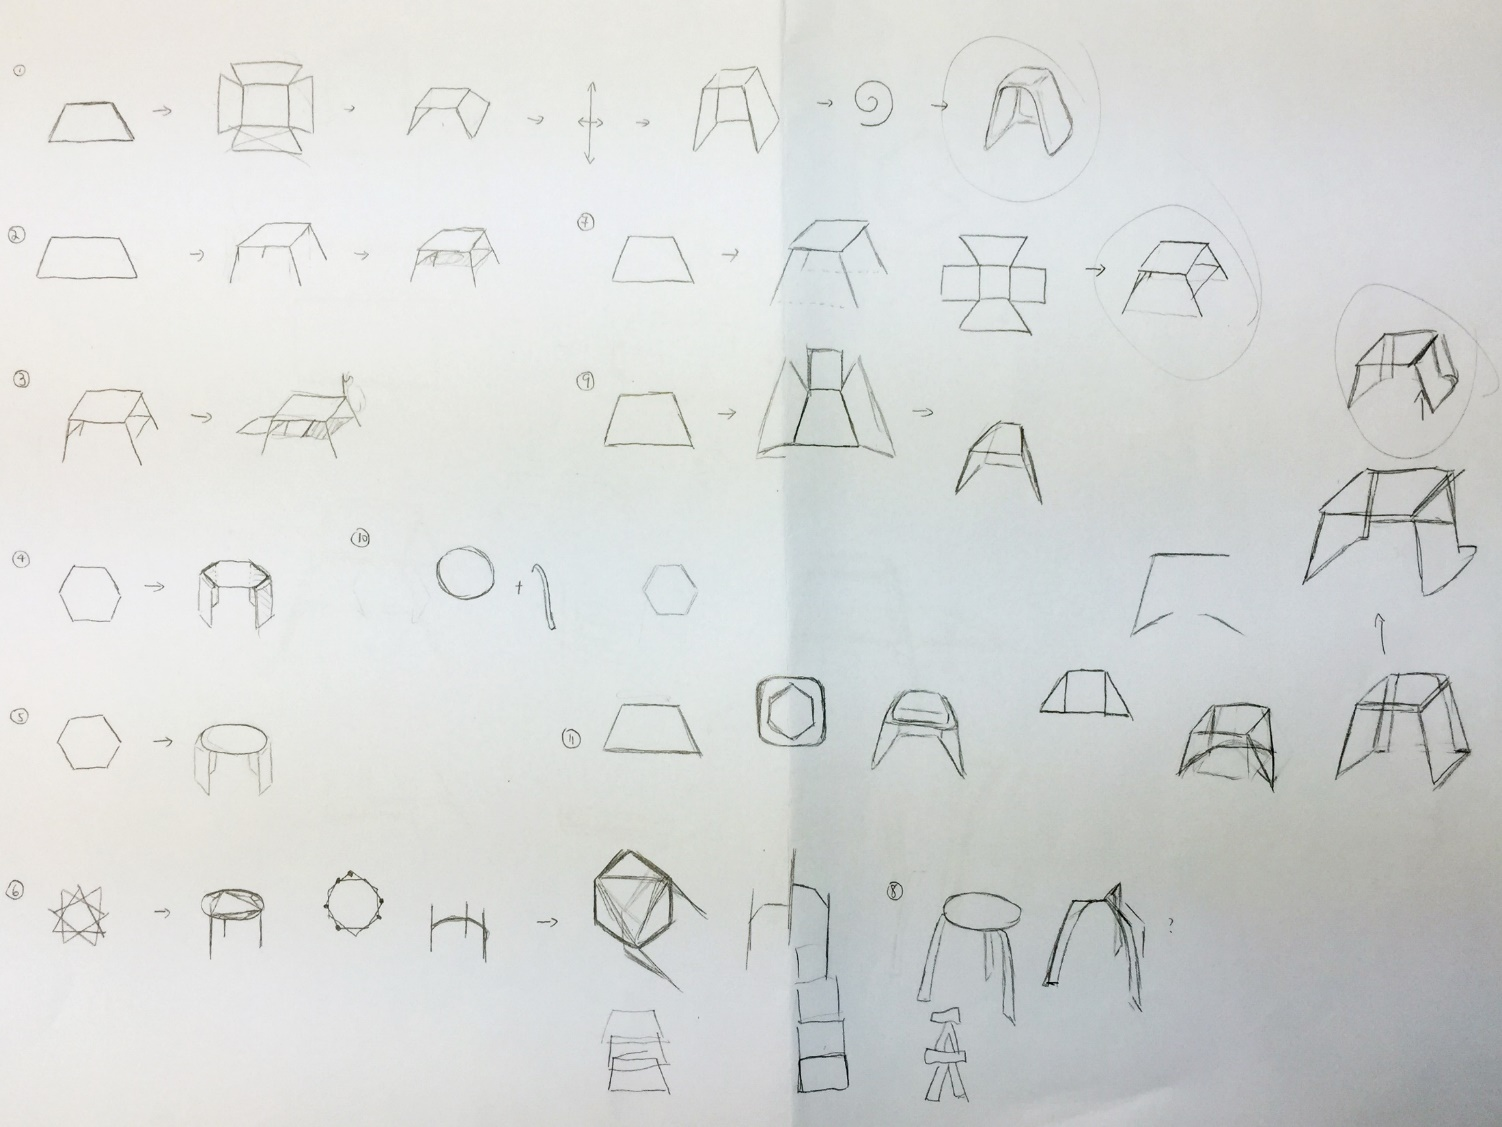 1
2
7
3
9
4
10
5
11
6
8
?